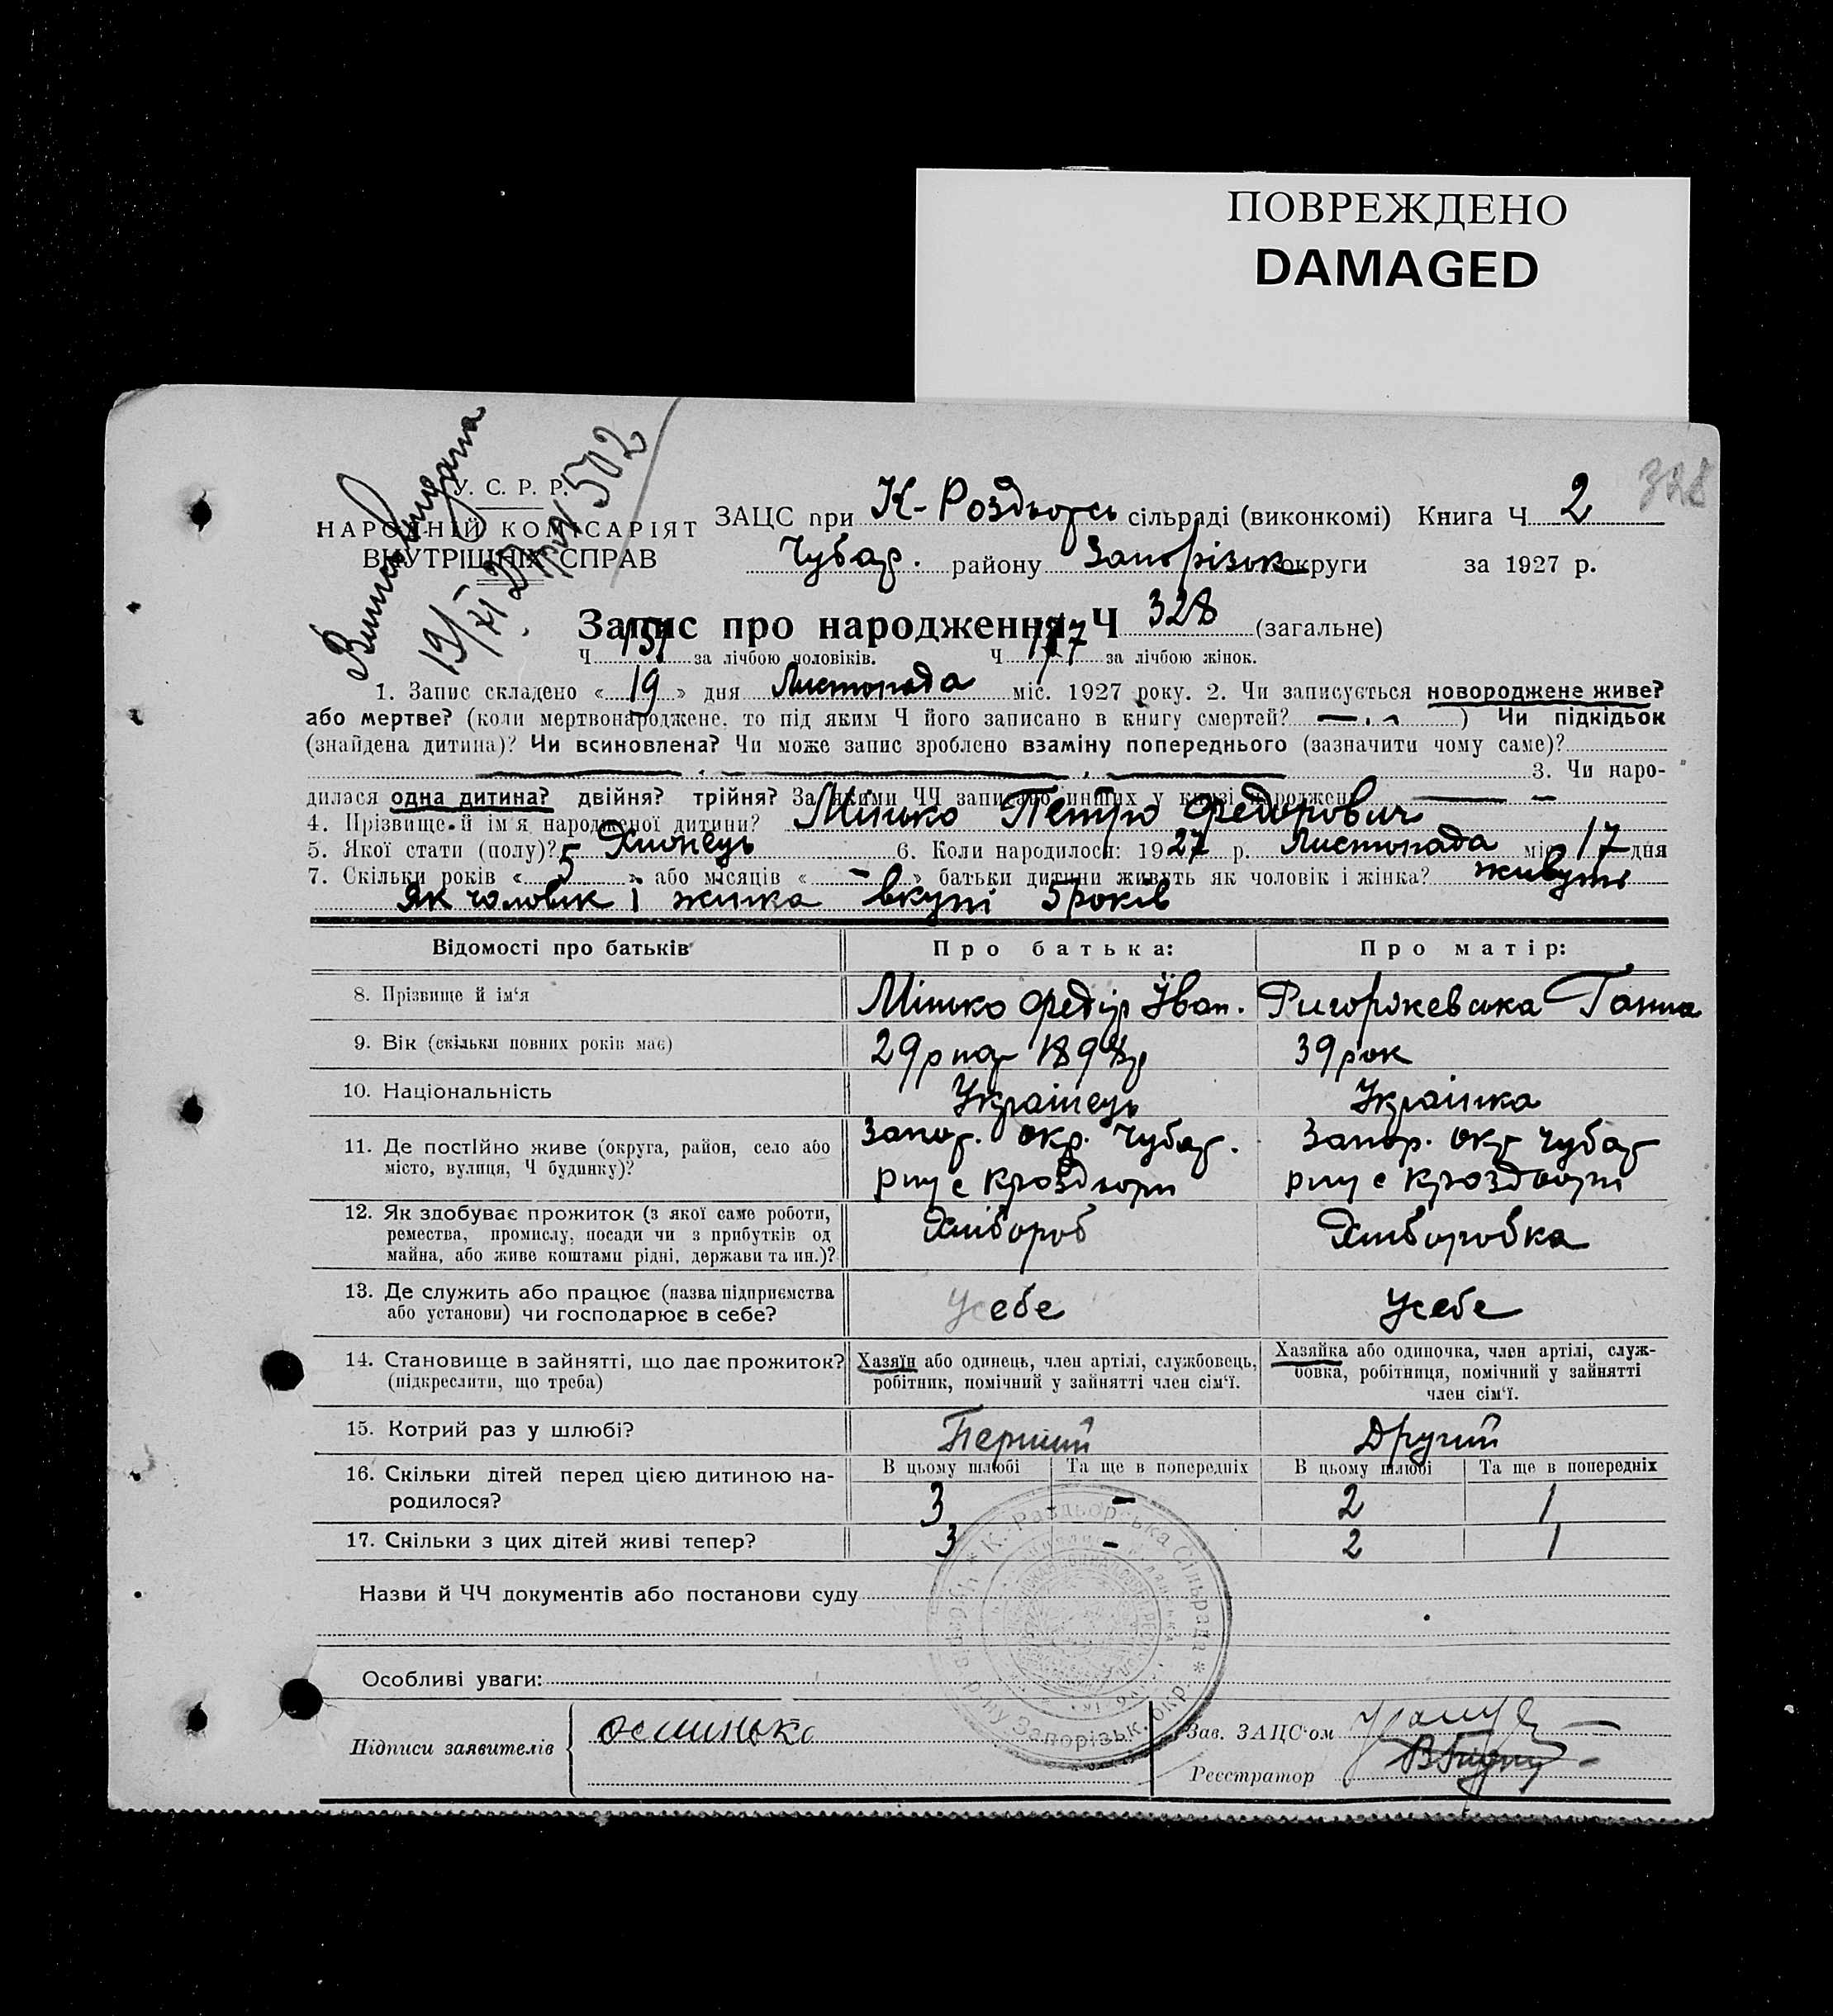 ПОВРЕЖДЕНО
DAMAGED
328
У. С. Р. Р.
НАРОДНІЙ КОМІСАРІЯТ
ВНУТРІШНІХ СПРАВ
Виписъ видана
502
ЗАЦС при К-Роздорсь сільраді (виконкомі) Книга Ч 2
Чубар. району Запорізок округи за 1927 р.
Запис про народження Ч 328 (загальне)
Ч 151 за лічбою чоловіків. Ч 177 за лічбою жінок.
1. Запис складено « 19 » дня Листопада міс. 1927 року. 2. Чи записується новороджене живе?
або мертве? (коли мертвонароджене, то під яким Ч його записано в книгу смертей? — ) Чи підкідьок
(знайдена дитина)? Чи всиновлена? Чи може запис зроблено взаміну попереднього (зазначити чому саме)?
3. Чи наро-
дилася одна дитина? двійня? трійня? За якими ЧЧ записано инших у книзі народжень —
4. Прізвище й ім'я народженої дитини? Мішко Петро Федорович
5. Якої стати (полу)? Хлопець 6. Коли народилося: 1927 р. Листопада міс. 17 дня
7. Скільки років « 5 » або місяців « – » батьки дитини живуть як чоловік і жінка? живуть
як чоловік і жінка вкупі 5 років
Відомості про батьків Про батька: Про матір:
8. Прізвище й ім'я Мішко Федір Іван. Ганна
9. Вік (скільки повних років має) 29 р 1898 р 39 рок
10. Національність Українець Українка
11. Де постійно живе (округа, район, село або Запор. окр. Чубар. Запор. окр Чубар
місто, вулиця, Ч будинку)? рну с Кроздори рну с Кроздори
12. Як здобуває прожиток (з якої саме роботи, Хлібороб Хліборобка
ремества, промислу, посади чи з прибутків од
майна, або живе коштами рідні, держави та ин.)?
13. Де служить або працює (назва підприємства Усебе Усебе
або установи) чи господарює в себе?
14. Становище в зайнятті, що дає прожиток? Хазяїн або одинець, член артілі, службовець, Хазяйка або одиночка, член артілі, служ-
(підкреслити, що треба) робітник, помічний у зайнятті член сім'ї. бовка, робітниця, помічний у зайнятті
член сім'ї.
15. Котрий раз у шлюбі? Перший Другий
16. Скільки дітей перед цією дитиною на- В цьому шлюбі Та ще в попередніх В цьому шлюбі Та ще в попередніх
родилося? 3 - 2 1
17. Скільки з цих дітей живі тепер? 3 - 2 1
Назви й ЧЧ документів або постанови суду
Особливі уваги:
К. Раздьорська Сільрада * р-ну Запорізьк. окр.
Підписи заявителів
Зав. ЗАЦС'ом
Реєстратор